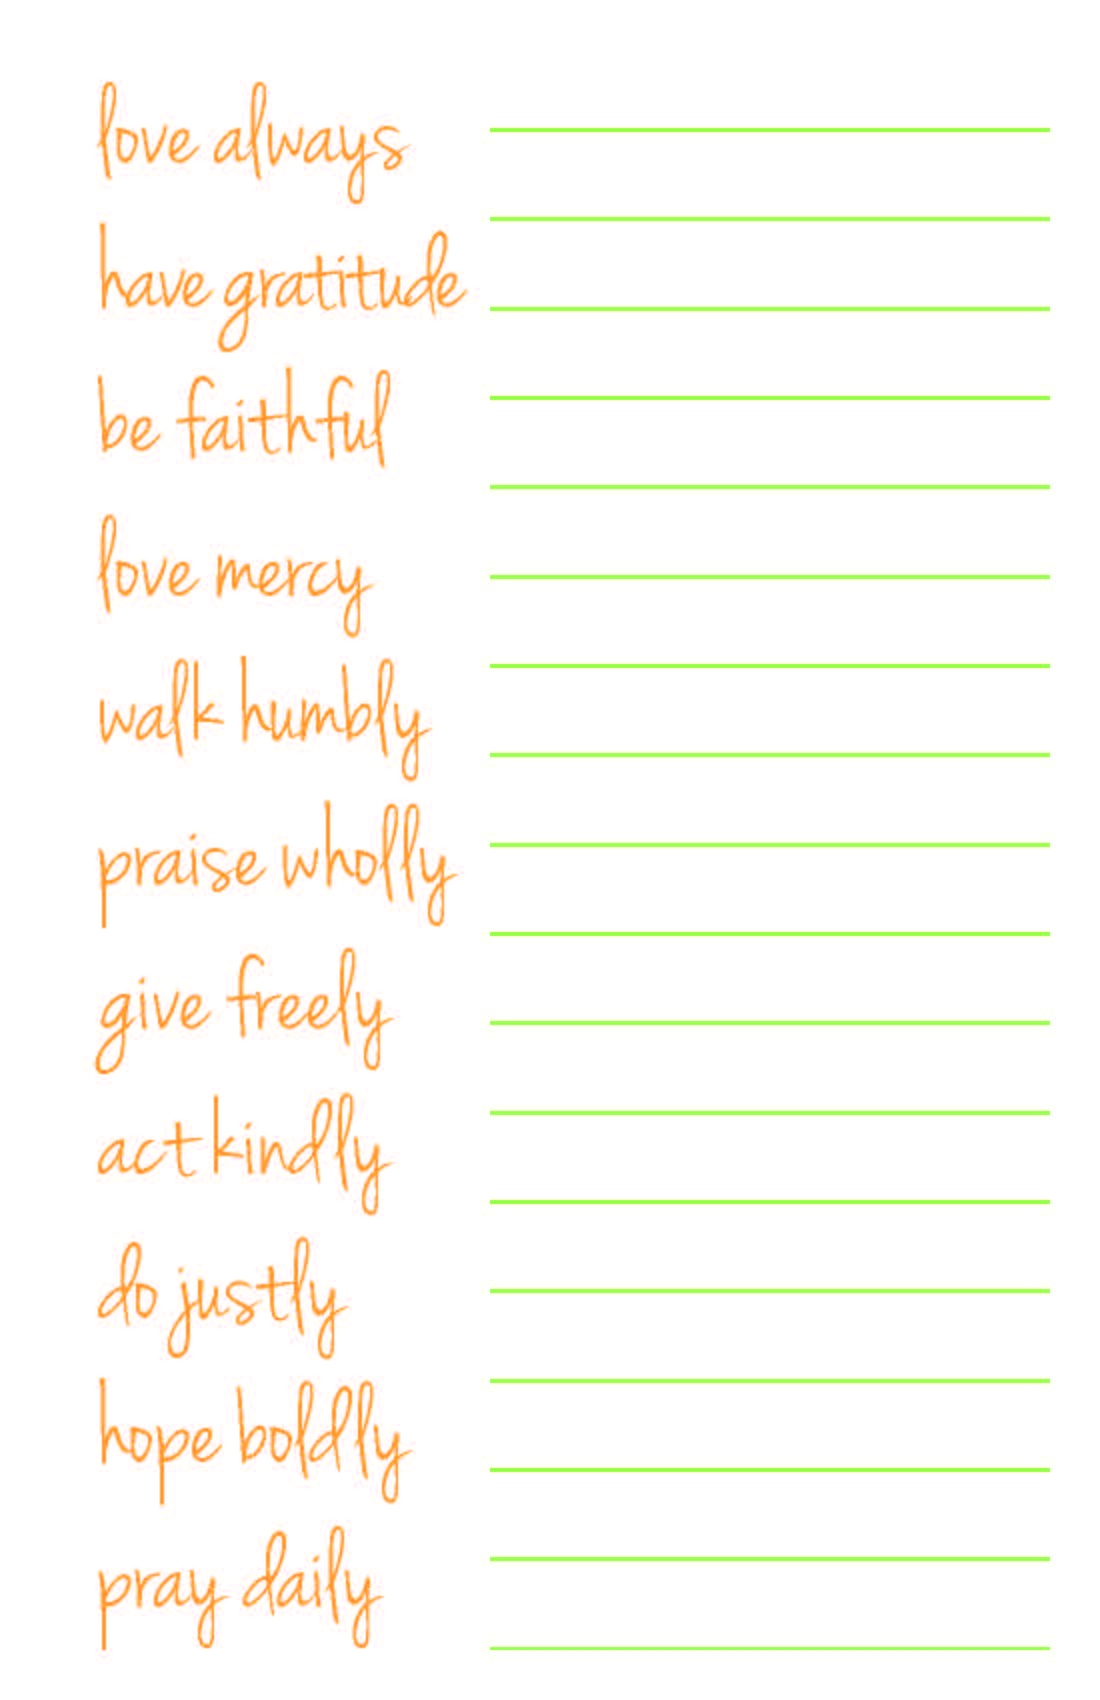 love always
have gratitude
be faithful
love mercy
walk humbly
praise wholly
give freely
act kindly
do justly
hope boldly
pray daily